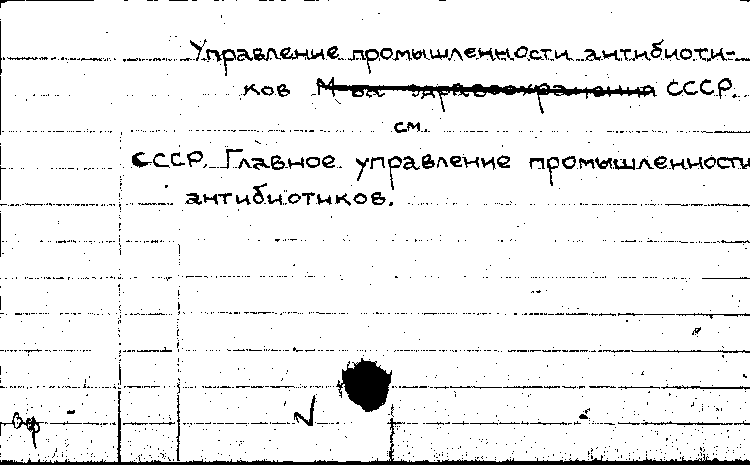 Управление промышленности антибиоти-
ков М-ва здравоохранения СССР.
см.
СССР. Главное управление промышленности
антибиотиков.